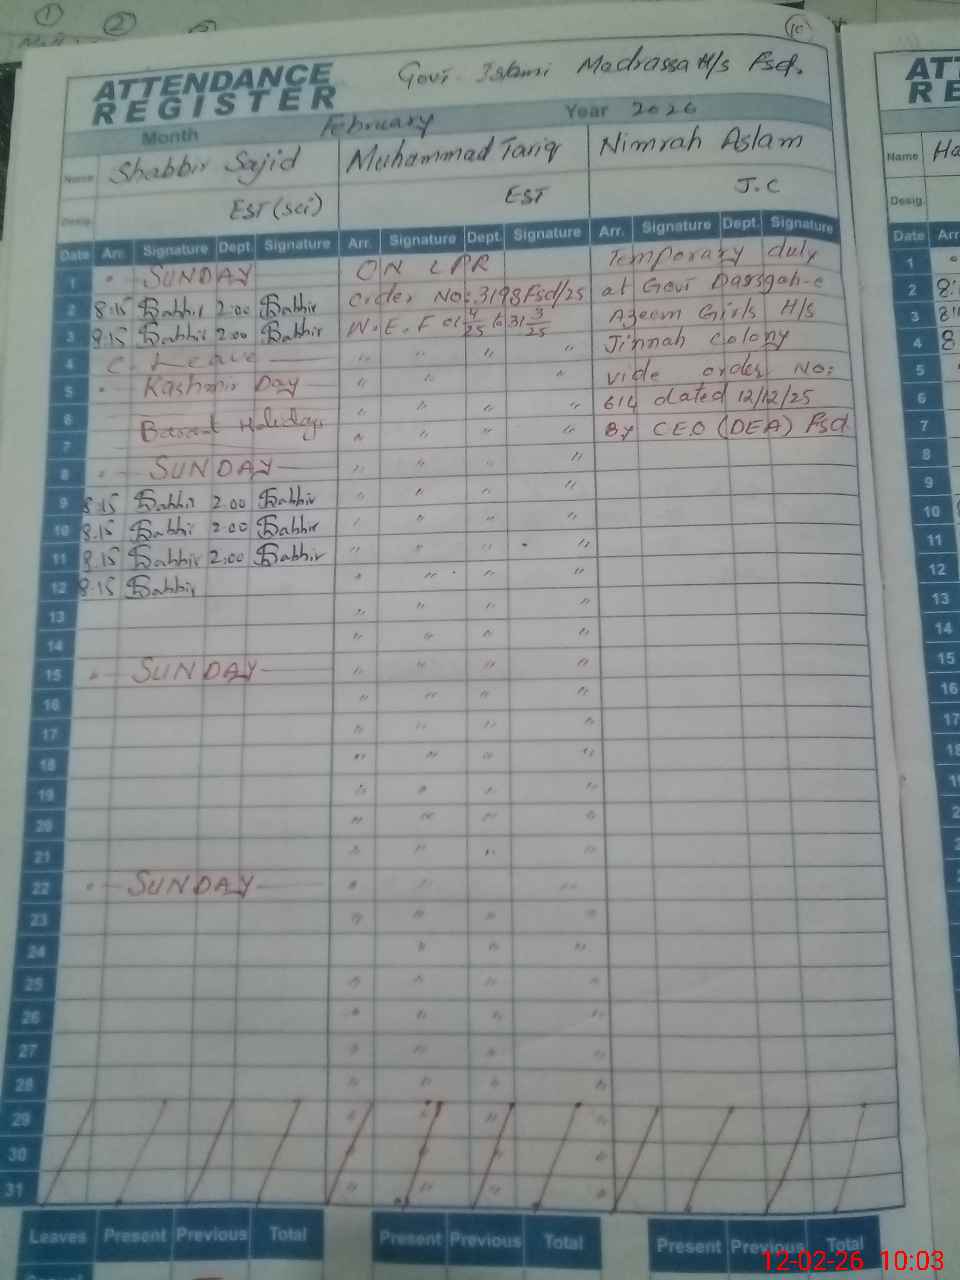 1
2
10
ATTENDANCE
REGISTER
Govt. Islami Madrassa H/s Fsd.
Month February Year 2026
Name Shabbir Sajid Muhammad Tariq Nimrah Aslam
Desig. EST (sci) EST J.C
Date Arr. Signature Dept. Signature Arr. Signature Dept. Signature Arr. Signature Dept. Signature
1 SUNDAY ON LPR Temporary duty
2 8:15 Shabbir 2:00 Shabbir order No: 3198 Fsd/25 at Govt Darsgah-e
3 8:15 Shabbir 2:00 Shabbir W.E.F 01 4/25 to 31 3/25 Azeem Girls H/s
4 C. Leave " " " " Jinnah colony
5 Kashmir Day " " " " vide order No:
6 " " " " 614 dated 12/12/25
7 Basant Holidays " " " " By CEO (DEA) Fsd
8 SUNDAY " " " "
9 8:15 Shabbir 2:00 Shabbir " " " "
10 8:15 Shabbir 2:00 Shabbir " " " "
11 8:15 Shabbir 2:00 Shabbir " " " "
12 8:15 Shabbir " " " "
13 " " " "
14 " " " "
15 SUNDAY " " " "
16 " " " "
17 " " " "
18 " " " "
19 " " " "
20 " " " "
21 " " " "
22 SUNDAY " " "
23 " " " "
24 " " "
25 " " " "
26 " " " "
27 " " " "
28 " " " "
29 " " " "
30 " " " "
31 " " "
Leaves Present Previous Total Present Previous Total Present Previous Total
Name
Desig.
Date Arr
1
2
3
4
5
6
7
8
9
10
11
12
13
14
15
16
17
18
12-02-26 10:03